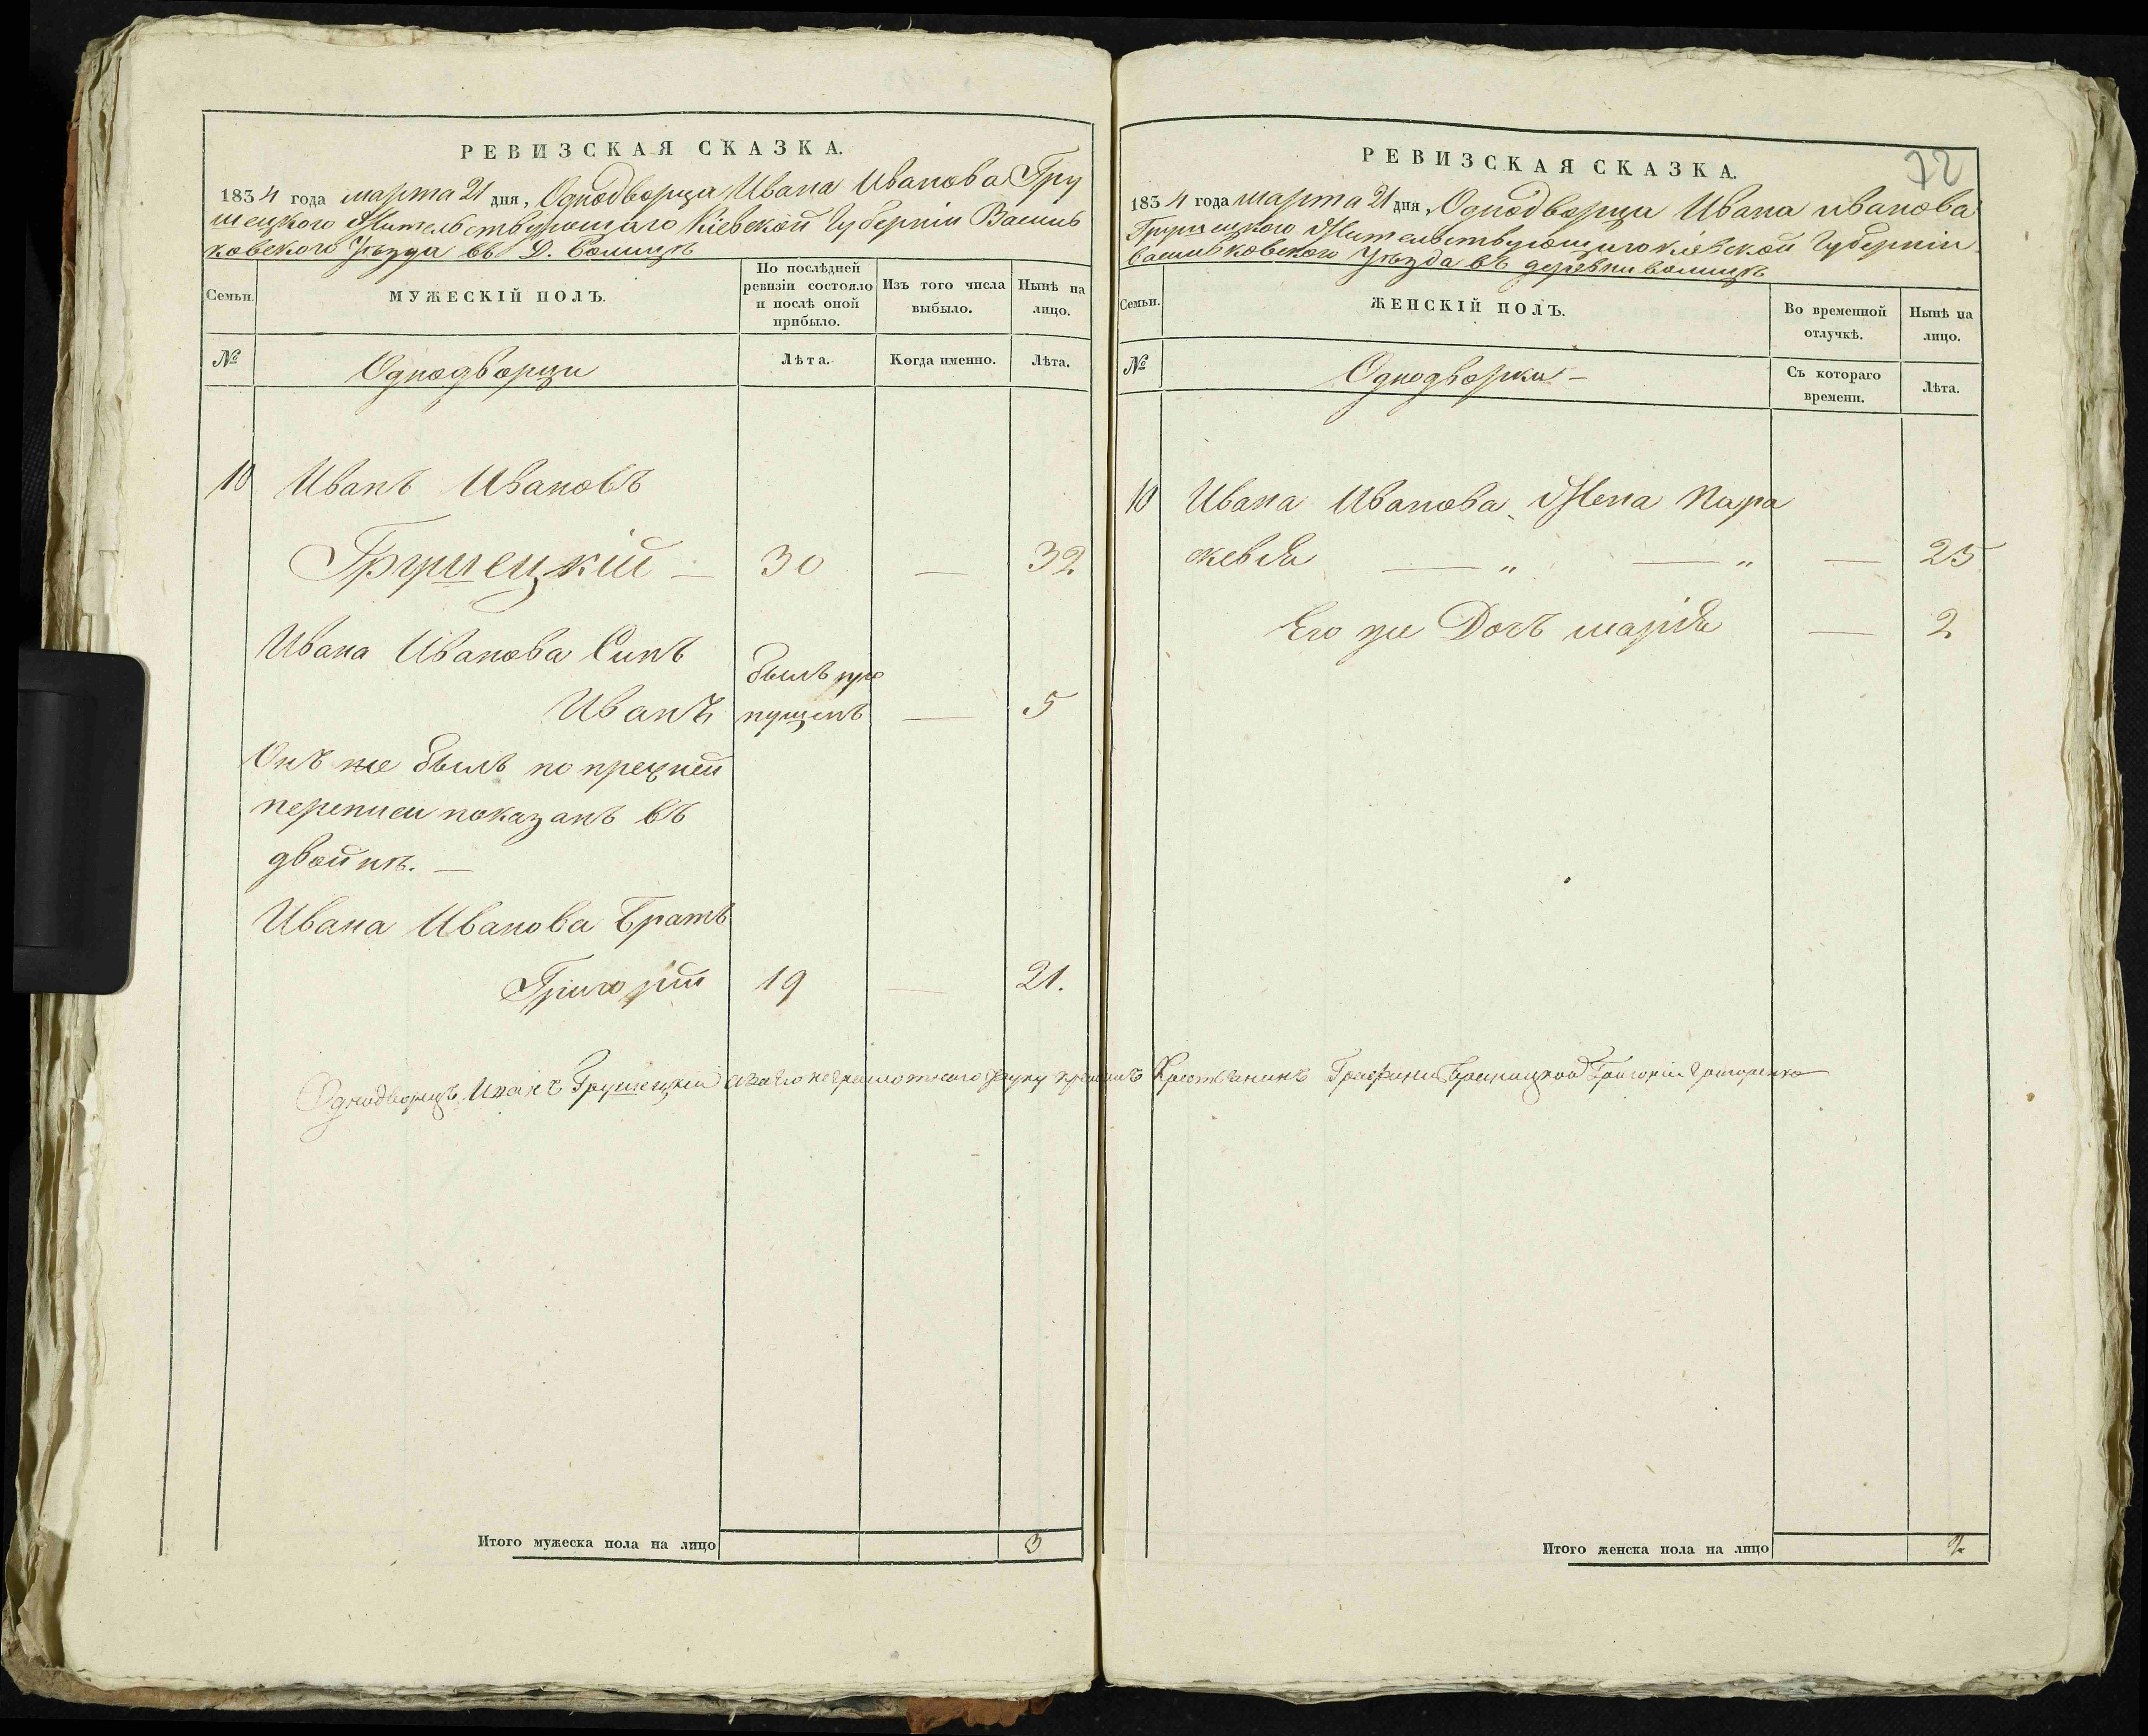 РЕВИЗСКАЯ СКАЗКА.
1834 года марта 21 дня, Однодворца Ивана Иванова Гру
шецкого Жительствующаго Кіевской Губерніи Василь
ковского Уезда въ Д. Волицѣ
Семьи.
МУЖЕСКІЙ ПОЛЪ.
По послѣдней ревизіи состояло и послѣ оной прибыло.
Изъ того числа выбыло.
Нынѣ на лицо.
№
Однодворци
Лѣта.
Когда именно.
Лѣта.
10 Иванъ Ивановъ
Грушецкій — 30 — 32
Ивана Иванова Синъ
Иванъ былъ про
пущенъ — 5
Онъ же былъ по прежней
переписи показанъ въ
двойнѣ. —
Ивана Иванова Братъ
Григорій 19 — 21.
Однодворецъ Иванъ Грушецкій а за его неграмотного руку приложилъ Крестьянинъ Графини Браницкой Григорій Григоренко
Итого мужеска пола на лицо 3
72
РЕВИЗСКАЯ СКАЗКА.
1834 года марта 21 дня, Однодворци Ивана иванова
Грушецкого Жительствующаго кіевской Губерніи
васильковского Уезда въ деревни волицѣ
Семьи.
ЖЕНСКІЙ ПОЛЪ.
Во временной отлучкѣ.
Нынѣ на лицо.
№
Однодворки —
Съ котораго времени.
Лѣта.
10 Ивана Иванова Жена Пара
скевія — „ — „ — 25
Его же Дочь марія — 2
Итого женска пола на лицо 2